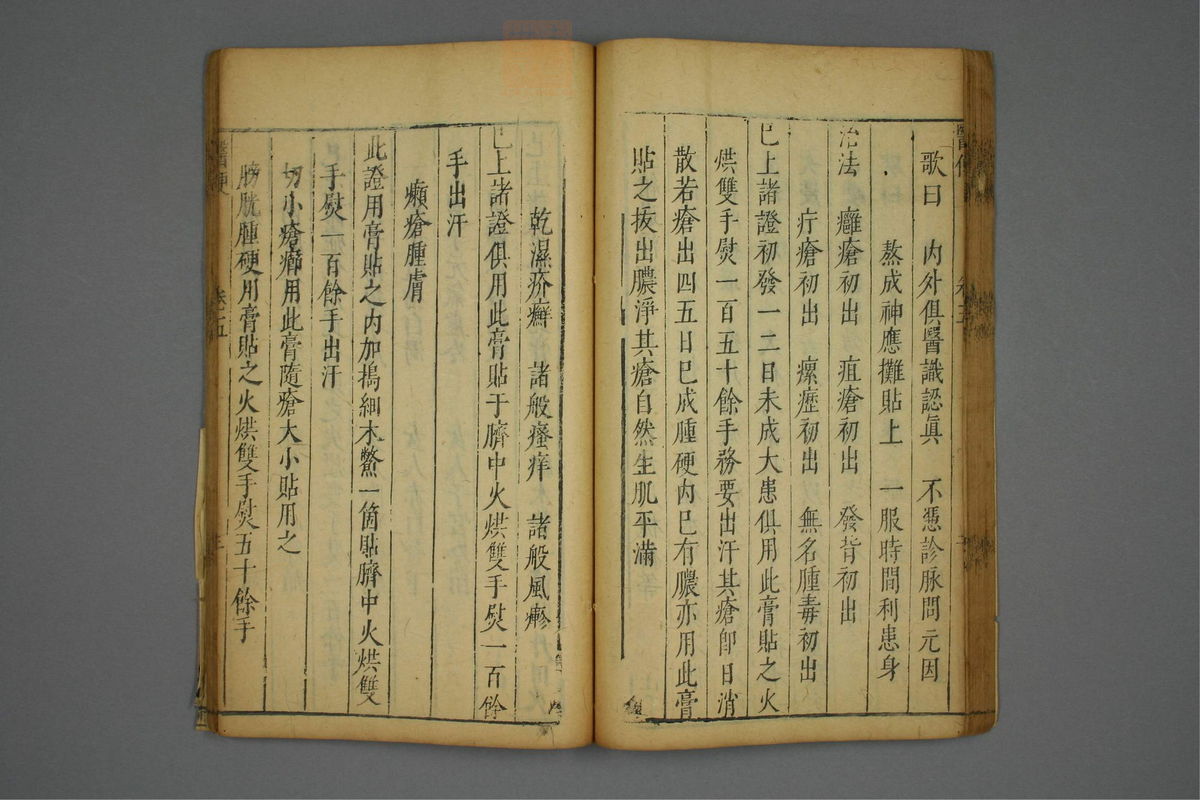 歌曰　內外俱醫識認眞　不憑診脉問元因
熬成神應攤貼上　一服時間利患身
治法　癰瘡初出　疽瘡初出　發背初出
疔瘡初出　瘰癧初出　無名腫毒初出
巳上諸證初發一二日未成大患俱用此膏貼之火
烘雙手熨一百五十餘手務要出汗其瘡卽日消
散若瘡出四五日巳成腫硬內巳有膿亦用此膏
貼之拔出膿淨其瘡自然生肌平滿
乾濕疥癬　諸般瘙痒　諸般風㿇
巳上諸證俱用此膏貼于臍中火烘雙手熨一百餘
手出汗
癩瘡腫膚
此證用膏貼之內加搗細木鱉一箇貼臍中火烘雙
手熨一百餘手出汗
一切小瘡癤用此膏隨瘡大小貼用之
膀胱腫硬用膏貼之火烘雙手熨五十餘手
卷五